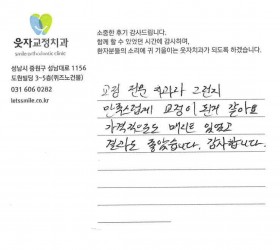 웃자교정치과
smile orthodontic clinic
성남시 중원구 성남대로 1156
도환빌딩 3~5층(퀴즈노건물)
031 606 0282
letssmile.co.kr
소중한 후기 감사드립니다.
함께 할 수 있었던 시간에 감사하며,
환자분들의 소리에 귀 기울이는 웃자치과가 되도록 하겠습니다.
교정 전문 치과라 그런지
만족스럽게 교정이 된거 같아요
가격적으로도 메리트 있었고
결과도 좋았습니다. 감사합니다.